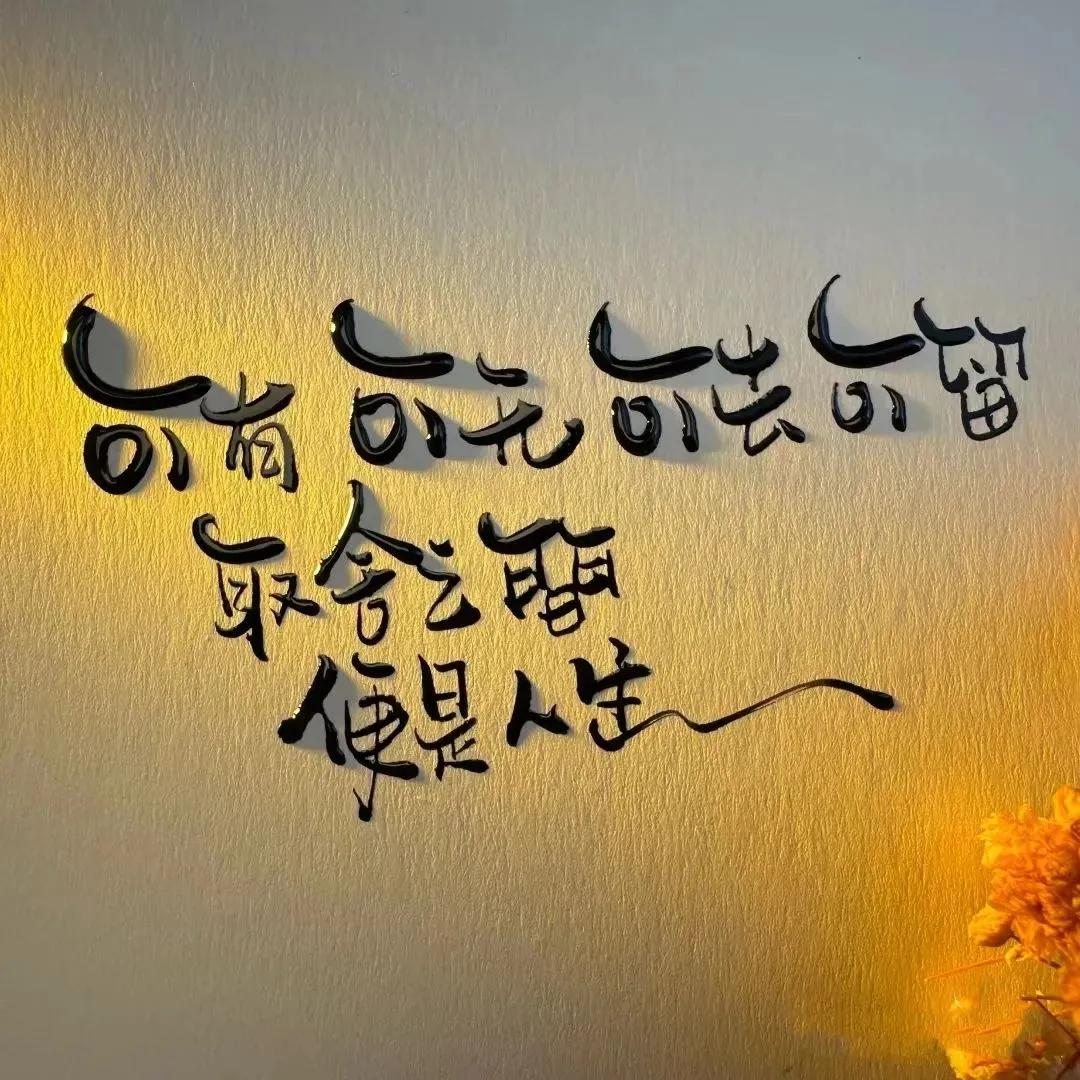 可有可无可去可留
取舍之间
便是人生